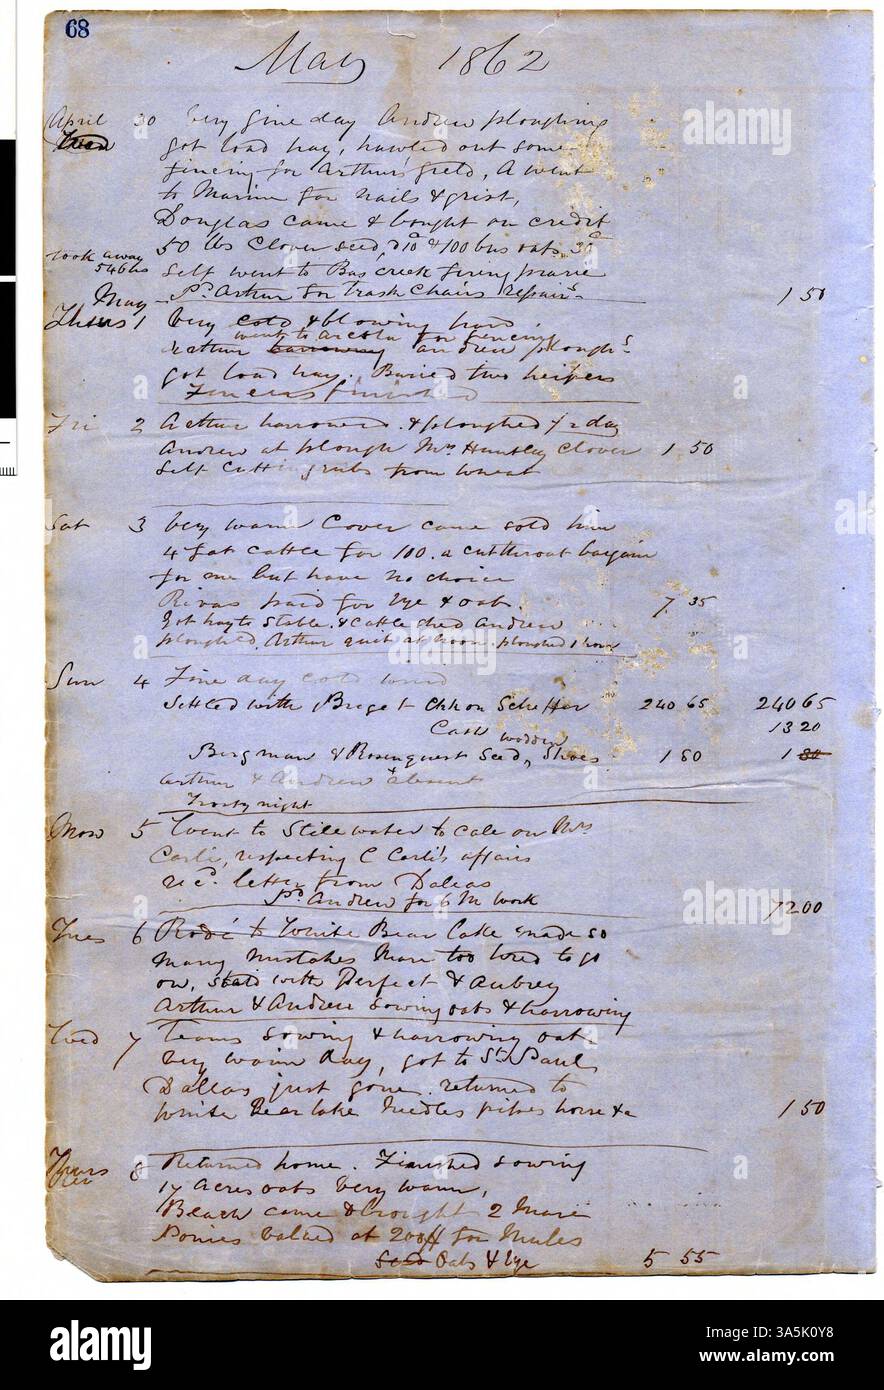 68
May 1862
April 30 Very fine day Andrew ploughing
got load hay, hawled out some
fincing for Arthurs field, A went
to Marine for nails & grist,
Douglas came & bought on credit
50 lbs Clover seed, & 100 bus oats
took away
54 bus
Self went to Bas creek
May Pd. Arthur for trash Chairs repairs 1 50
Thurs 1 Very cold & blowing hard
went to Arcola for fencing
Arthur andrew plough
got load hay. Buried two heifers
finished
Fri 2 Arthur harrowed & ploughed 1/2 day
Andrew at plough Mrs Huntley Clover 1 50
Self Cutting grubs from wheat
Sat 3 Very warm Cover came sold him
4 fat cattle for 100. a cutthroat bargain
for me but have no choice
Rivas paid for rye & oats. 7 35
Got hay to Stable & cattle shed Andrew
ploughed. Arthur quit at noon. ploughed 1 hour
Sun 4 Fine day cold wind
Settled with Scheffer 240 65 240 65
Cash 13 20
Bergman & Rosenquest Seed, Shoes 1 80 1 80
Arthur & Andrew absent
Frosty night
Mon 5 Went to Stillwater to call on Mrs
Carli, respecting C Carli's affairs
recd. letter from Dallas
Pd Andrew for 6 M Work 72 00
Tues 6 Rode to White Bear Lake made so
many mistakes Mare too tired to go
on, staid with Perfect & Aubrey
Arthur & Andrew sowing oats & harrowing
Wed 7 Teams sowing & harrowing oats
Very warm day, got to St. Paul
Dallas just gone. returned to
White Bear lake Needles pipes horse &c 1 50
Thurs 8 Returned home. Finished sowing
17 Acres oats Very warm,
Beach came & brought 2 Mare
Ponies valued at 200$ for Mules
Seed Oats & rye 5 55
alamy
Image ID: 3A5K0Y8
www.alamy.com